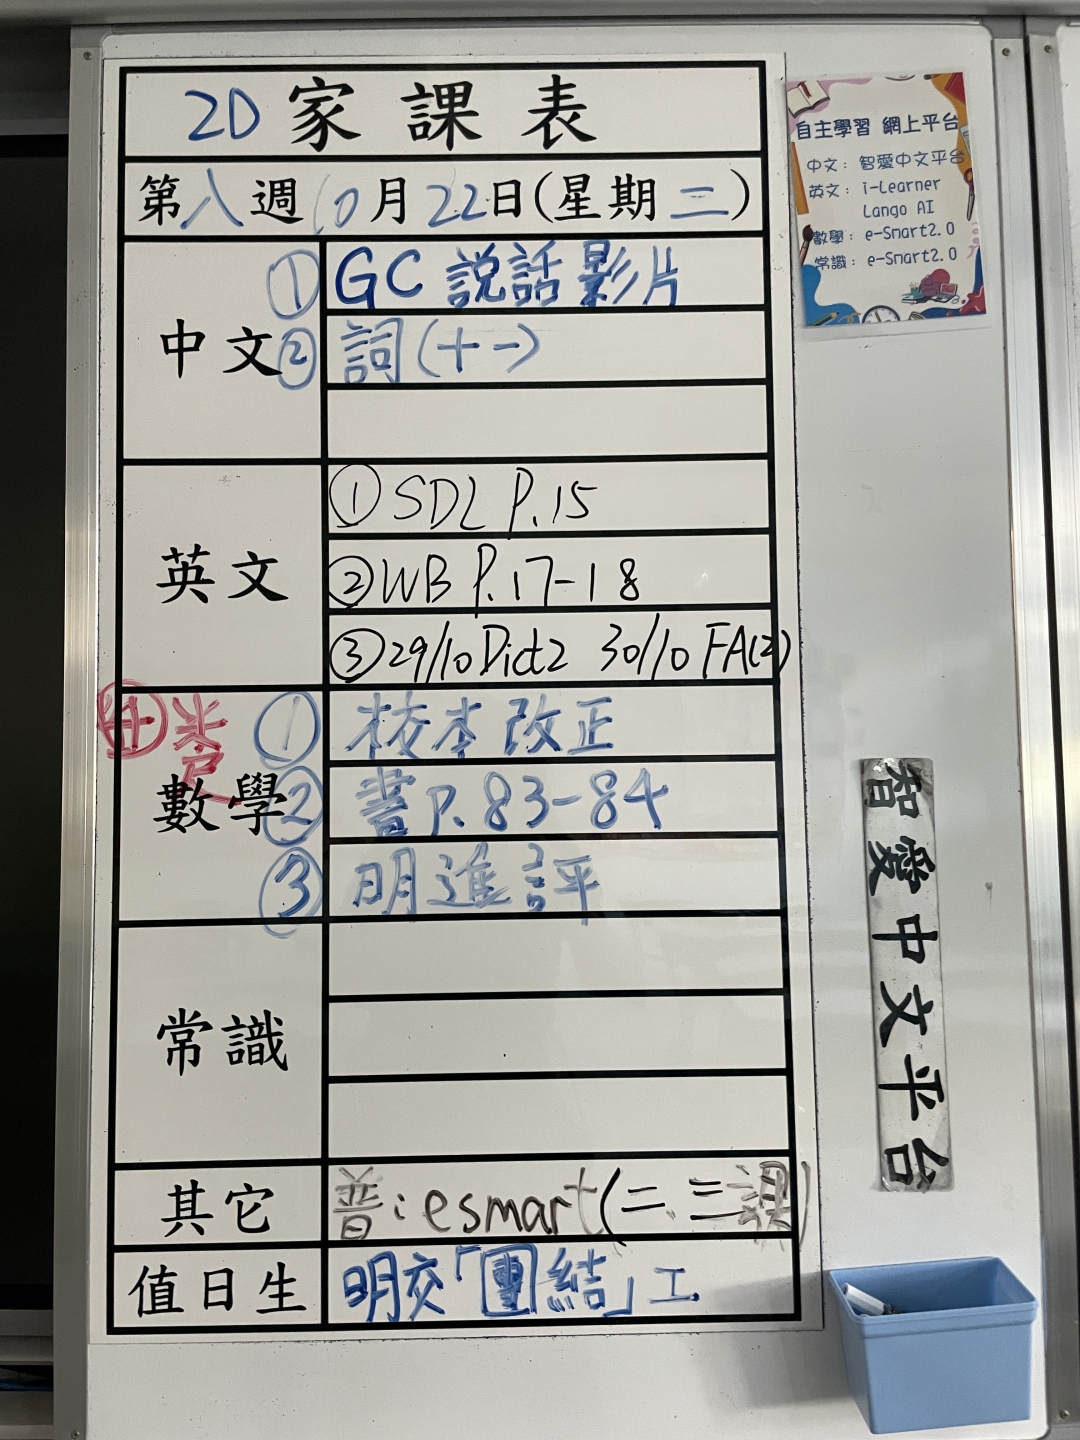 2D 家課表
第八週 10月22日(星期二)
中文
① GC 說話影片
② 詞(十一)
英文
① SDL P.15
② WB P.17-18
③ 29/10 Dict2 30/10 FA(2)
數學
① 校本改正
② 書P.83-84
③ 明進評
常識
其它
普:esmart(二、三課)
值日生
明交「團結」工
自主學習 網上平台
中文:智愛中文平台
英文:i-Learner
Lango AI
數學:e-Smart2.0
常識:e-Smart2.0
智愛中文平台